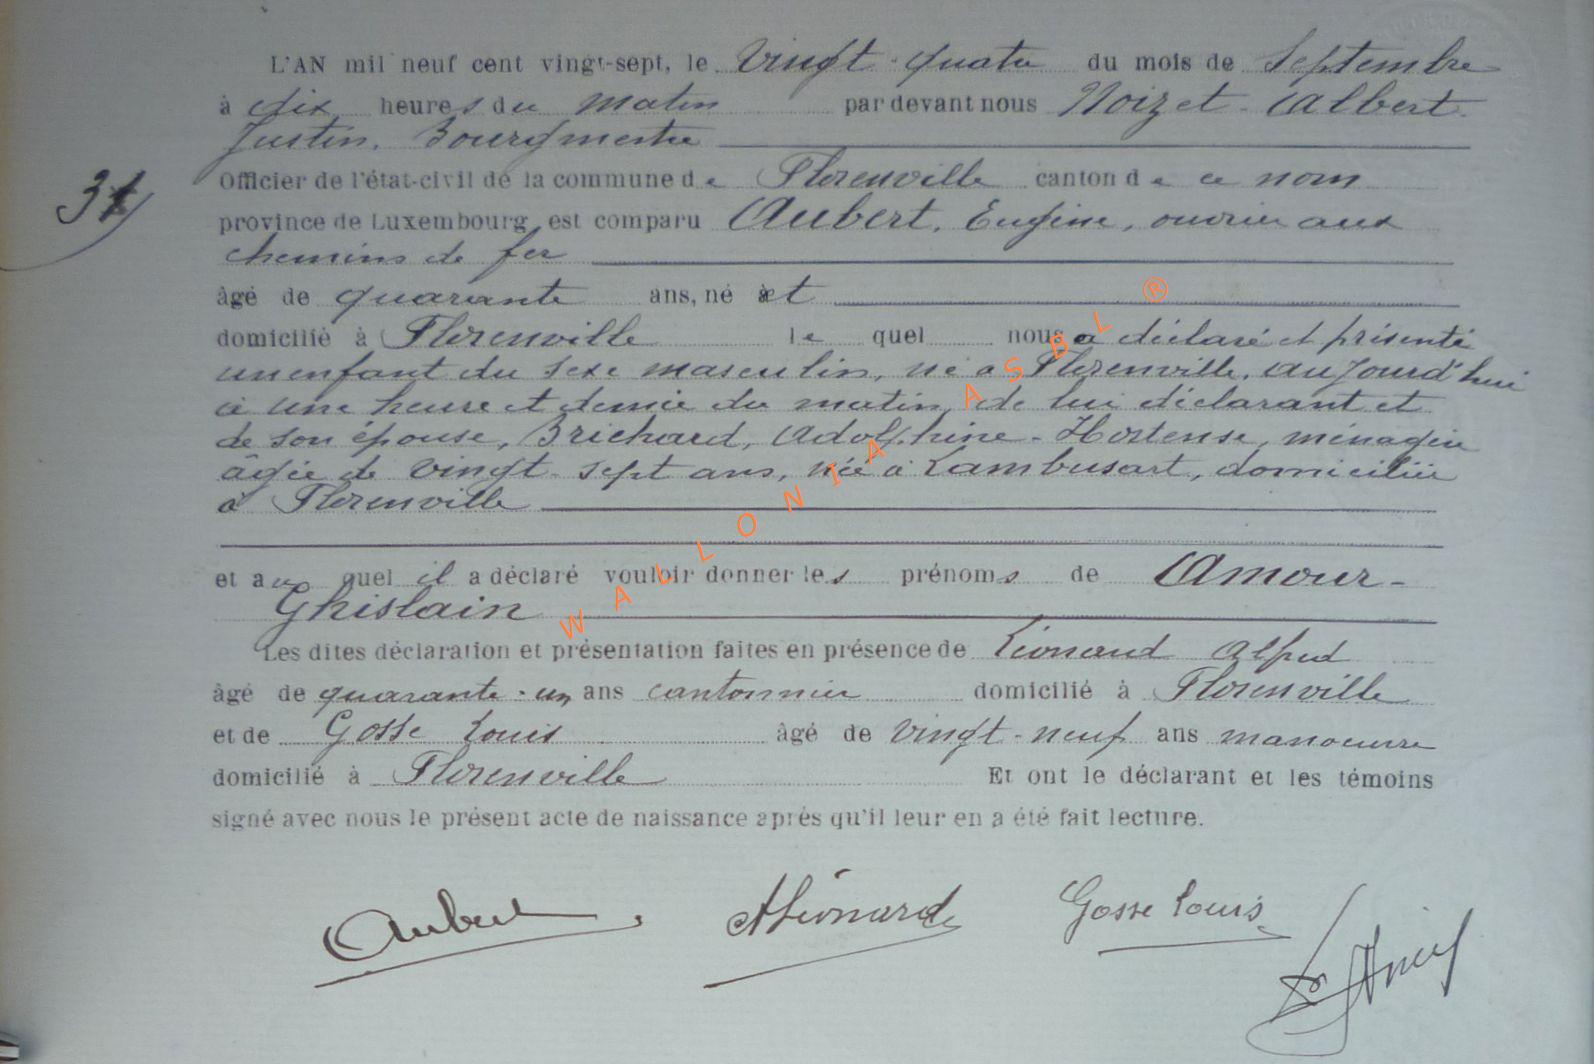 L'AN mil neuf cent vingt-sept, le vingt-quatre du mois de Septembre
à dix heures du matin par devant nous Noizet Albert
Justin, Bourgmestre
31
Officier de l'état-civil de la commune de Florenville canton de ce nom
province de Luxembourg est comparu Aubert, Eugène, ouvrier aux
chemins de fer
âgé de quarante ans, né à et
domicilié à Florenville le quel nous a déclaré et présenté
un enfant du sexe masculin, né à Florenville, aujourd'hui
à une heure et demie du matin, de lui déclarant et
de son épouse, Brichard, Adolphine-Hortense, ménagère
âgée de vingt-sept ans, née à Lambusart, domiciliée
à Florenville
et auquel il a déclaré vouloir donner les prénoms de Amour-
Ghislain
Les dites déclaration et présentation faites en présence de Léonard Alfred
âgé de quarante-un ans cantonnier domicilié à Florenville
et de Gosse Louis âgé de vingt-neuf ans manoeuvre
domicilié à Florenville Et ont le déclarant et les témoins
signé avec nous le présent acte de naissance après qu'il leur en a été fait lecture.
Aubert ALéonard Gosse Louis
WALLONIA ASBL ®